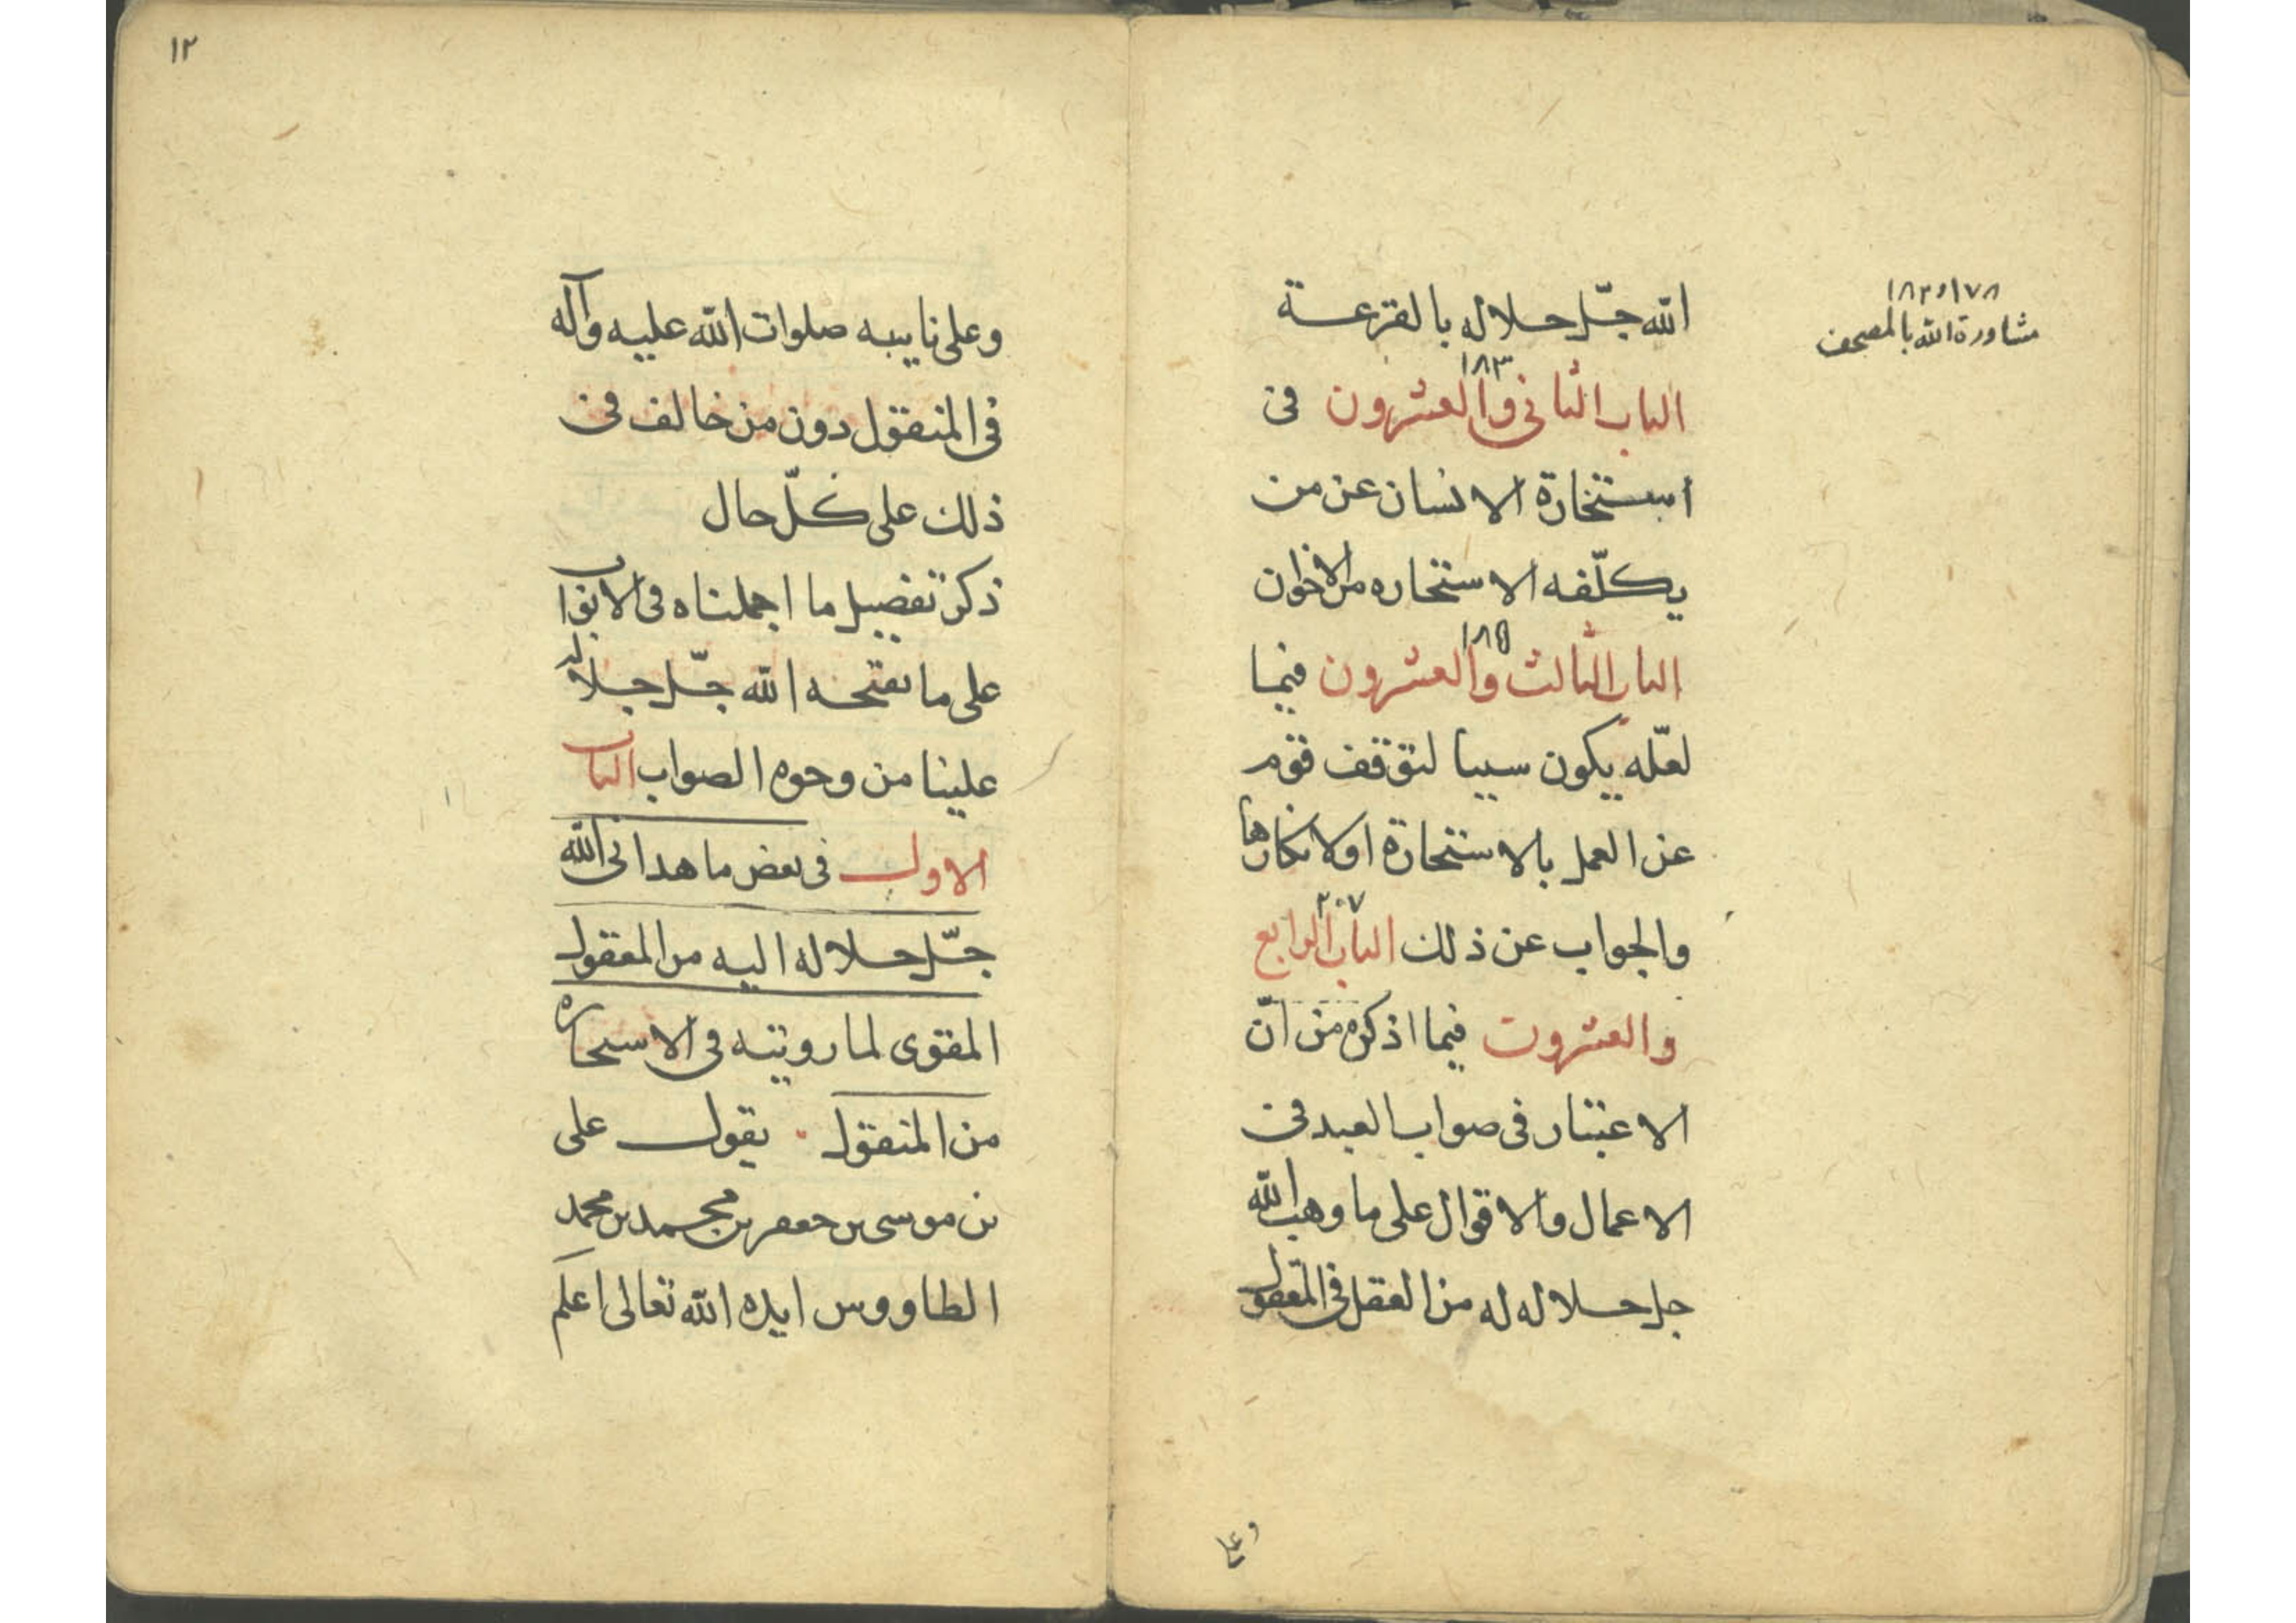 ١٧٨ و ١٨٢
مشاورة الله بالمصحف
الله جلّ جلاله بالقرعة
١٨٣
الباب الثانى والعشرون فى
استخارة الانسان عن من
يكلّفه الاستخاره من الاخوان
١٨٥
الباب الثالث والعشرون فيما
لعلّه يكون سببا لتوقف قوم
عن العمل بالاستخارة او لانكارها
٢٠٧
والجواب عن ذلك الباب الرابع
والعشرون فيما اذكره من انّ
الاعتبار فى صواب العبد فى
الاعمال والاقوال على ما وهب الله
جل جلاله له من العقل فى المعقول
وعلى
١٢
وعلى نايبه صلوات الله عليه وآله
فى المنقول دون من خالف فى
ذلك على كلّ حال
ذكر تفصيل ما اجملناه فى الابواب
على ما يفتحه الله جلّ جلاله
علينا من وجوه الصواب الباب
الاول فى بعض ما هدانى الله
جلّ جلاله اليه من المعقول
المقوى لما رويته فى الاستخاره
من المنقول يقول على
بن موسى بن جعفر بن محمد بن محمد
الطاووس ايده الله تعالى اعلم